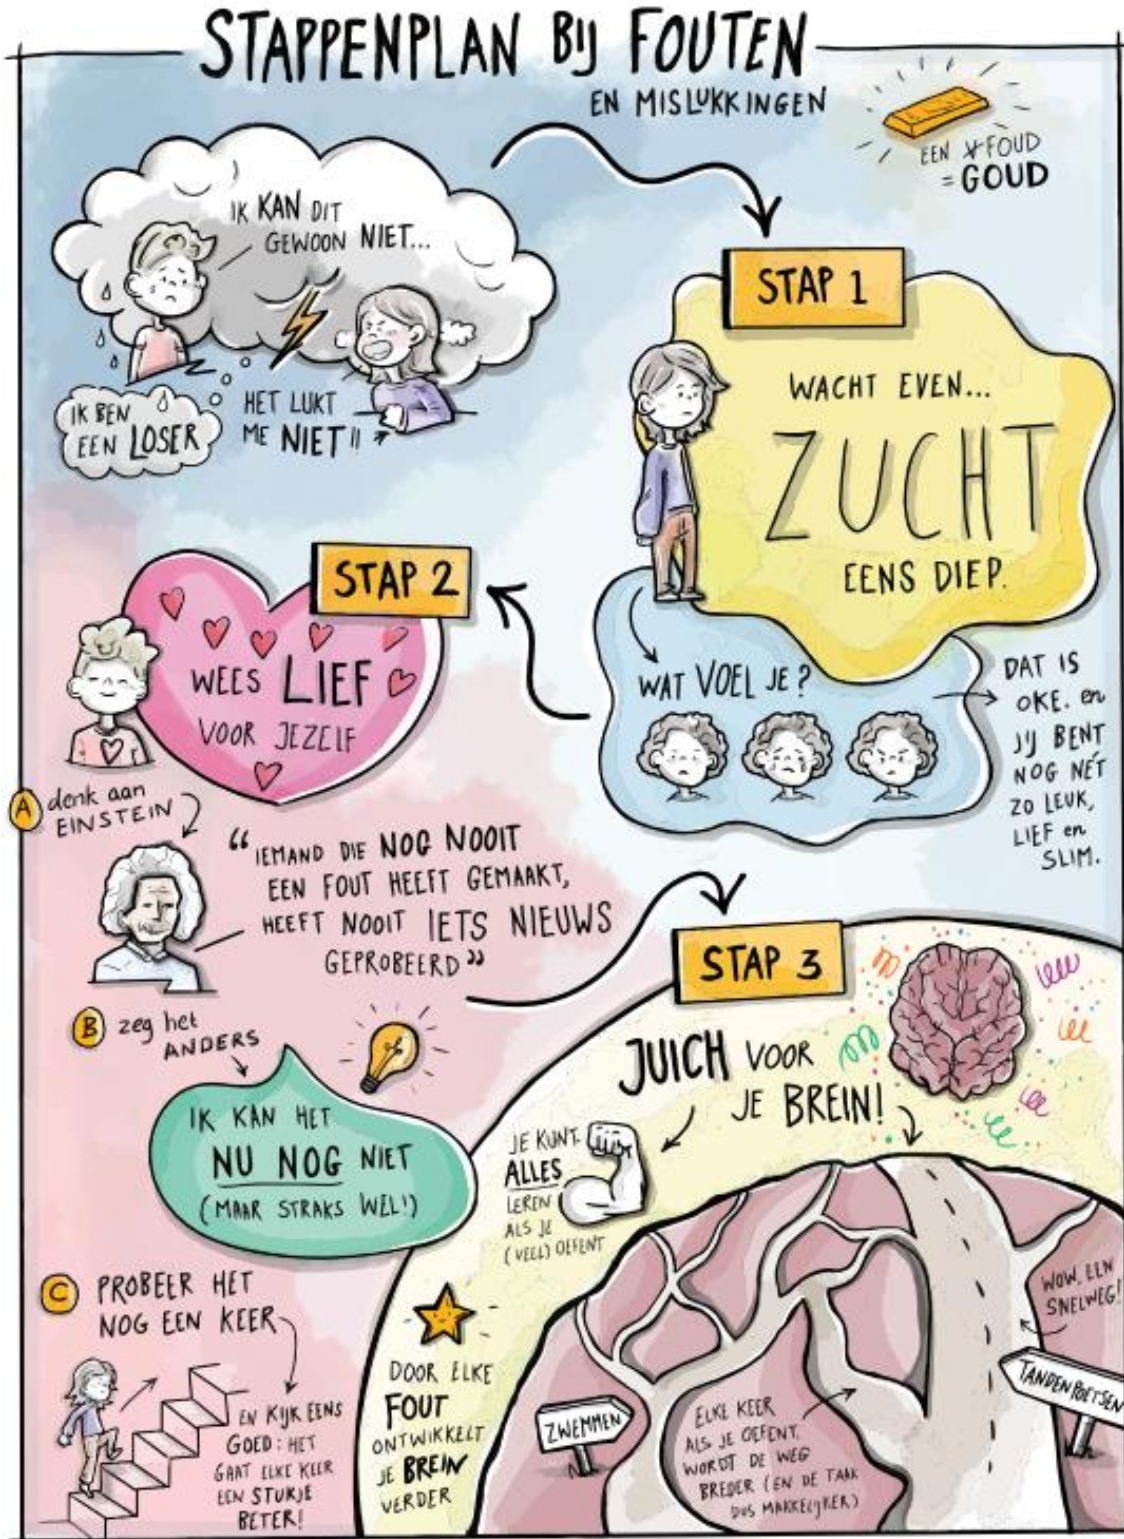 STAPPENPLAN BIJ FOUTEN
EN MISLUKKINGEN
EEN FOUD
= GOUD
IK KAN DIT
GEWOON NIET...
IK BEN
EEN LOSER
HET LUKT
ME NIET!!
STAP 1
WACHT EVEN...
ZUCHT
EENS DIEP.
WAT VOEL JE?
DAT IS
OKE. en
JIJ BENT
NOG NÉT
ZO LEUK,
LIEF en
SLIM.
STAP 2
WEES LIEF
VOOR JEZELF
A denk aan
EINSTEIN
“IEMAND DIE NOG NOOIT
EEN FOUT HEEFT GEMAAKT,
HEEFT NOOIT IETS NIEUWS
GEPROBEERD”
B zeg het
ANDERS
IK KAN HET
NU NOG NIET
(MAAR STRAKS WEL!)
C PROBEER HET
NOG EEN KEER
EN KIJK EENS
GOED: HET
GAAT ELKE KEER
EEN STUKJE
BETER!
STAP 3
JUICH VOOR
JE BREIN!
JE KUNT
ALLES
LEREN
ALS JE
(VEEL) OEFENT
DOOR ELKE
FOUT
ONTWIKKELT
JE BREIN
VERDER
ZWEMMEN
ELKE KEER
ALS JE OEFENT,
WORDT DE WEG
BREDER (EN DE TAAK
DUS MAKKELIJKER)
WOW, EEN
SNELWEG!
TANDENPOETSEN